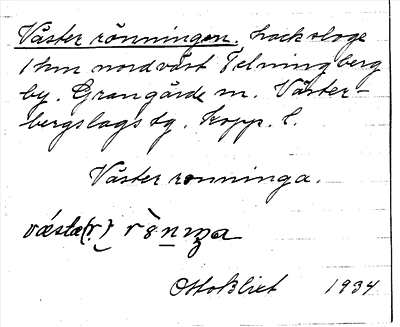 Väster rönningen. Hacksloge
1 km nordväst Telningberg
by. Grangärde sn. Väster-
bergslags tg. Kopp. l.
Väster rönninga.
Otto Blixt 1934